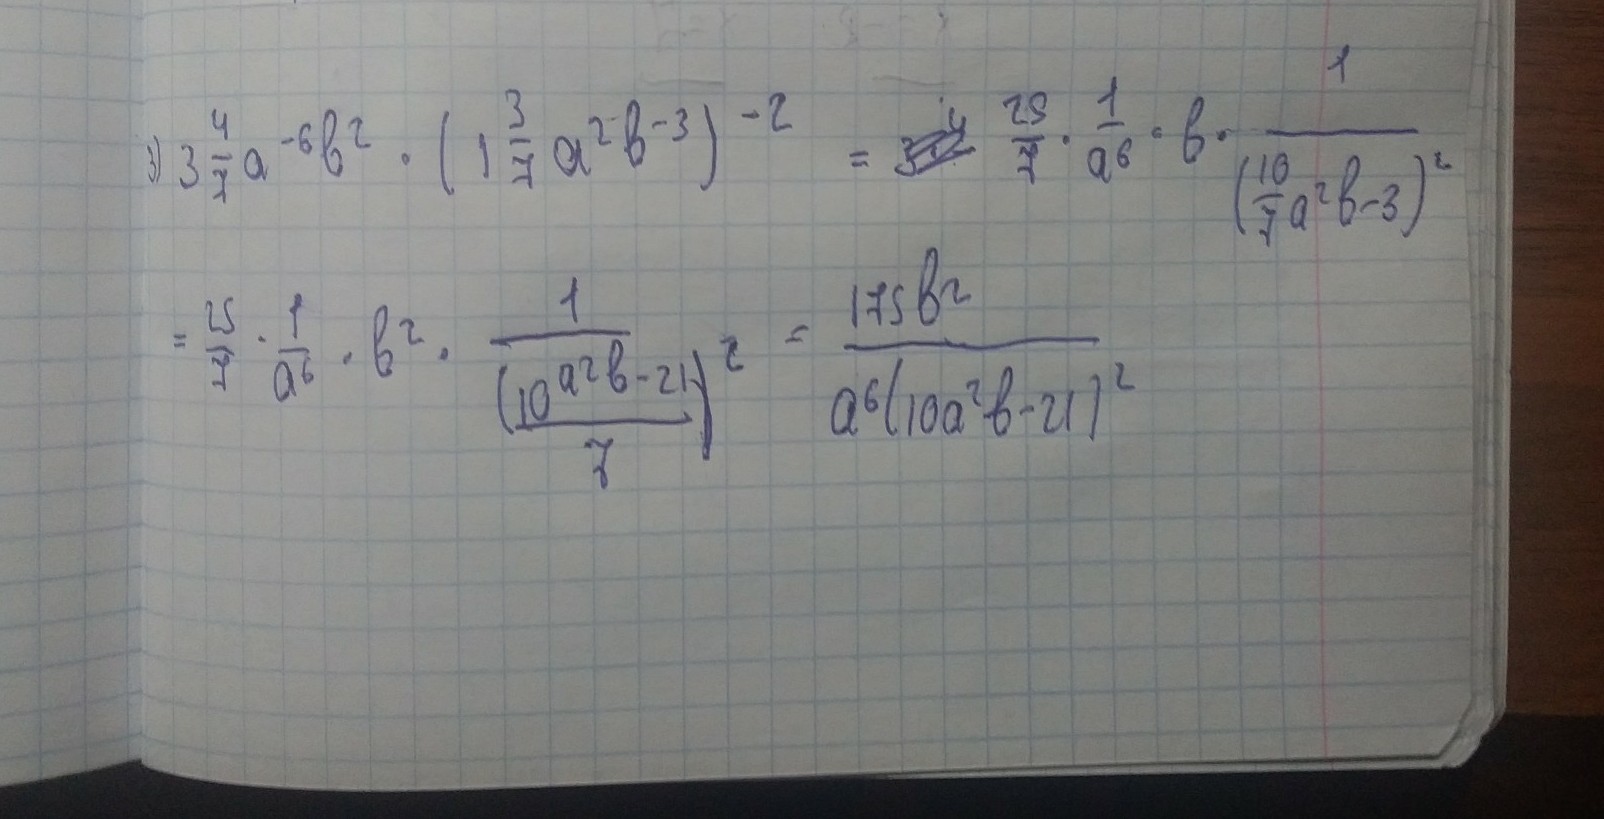 3) 3 4/7 a^-6 b^2 · (1 3/7 a^2 b^-3)^-2 = 25/7 · 1/a^6 · b · 1/(10/7 a^2 b-3)^2
= 25/7 · 1/a^6 · b^2 · 1/((10a^2b-21)/7)^2 = 175b^2/a^6(10a^2b-21)^2